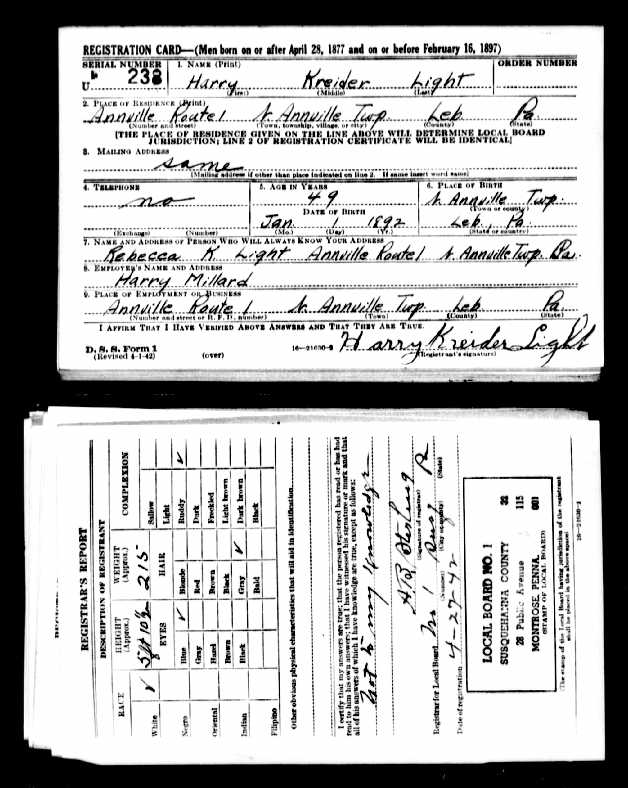 REGISTRATION CARD—(Men born on or after April 28, 1877 and on or before February 16, 1897)
SERIAL NUMBER 1. NAME (Print) ORDER NUMBER
U 238 Harry Kreider Light
(First) (Middle) (Last)
2. PLACE OF RESIDENCE (Print)
Annville Route 1 N. Annville Twp. Leb. Pa.
(Number and street) (Town, township, village, or city) (County) (State)
[THE PLACE OF RESIDENCE GIVEN ON THE LINE ABOVE WILL DETERMINE LOCAL BOARD
JURISDICTION; LINE 2 OF REGISTRATION CERTIFICATE WILL BE IDENTICAL]
3. MAILING ADDRESS
same
[Mailing address if other than place indicated on line 2. If same insert word same]
4. TELEPHONE 5. AGE IN YEARS 6. PLACE OF BIRTH
no 49 N. Annville Twp.
DATE OF BIRTH (Town or county)
Jan 1 1892 Leb. Pa.
(Exchange) (Number) (Mo.) (Day) (Yr.) (State or country)
7. NAME AND ADDRESS OF PERSON WHO WILL ALWAYS KNOW YOUR ADDRESS
Rebecca K. Light Annville Route 1 N. Annville Twp. Pa.
8. EMPLOYER'S NAME AND ADDRESS
Harry Millard
9. PLACE OF EMPLOYMENT OR BUSINESS
Annville Route 1 N. Annville Twp Leb. Pa.
(Number and street or R. F. D. number) (Town) (County) (State)
I AFFIRM THAT I HAVE VERIFIED ABOVE ANSWERS AND THAT THEY ARE TRUE.
D. S. S. Form 1
(Revised 4-1-42) (over) 16—21630-2 Harry Kreider Light
(Registrant's signature)
REGISTRAR'S REPORT
DESCRIPTION OF REGISTRANT
RACE HEIGHT (Approx.) WEIGHT (Approx.) COMPLEXION
✓ 5 ft 10 1/2 215
White EYES HAIR Sallow
Light
Negro Blue ✓ Blonde Ruddy ✓
Gray Red Dark
Oriental Hazel Brown Freckled
Brown Black Light brown
Indian Black Gray ✓ Dark brown
Bald Black
Filipino
Other obvious physical characteristics that will aid in identification
I certify that my answers are true; that the person registered has read or has had
read to him his own answers; that I have witnessed his signature or mark and that
all of his answers of which I have knowledge are true, except as follows:
not to my knowledge
(Signature of registrar)
Registrar for Local Board No 1 Susq Pa
(Number) (City or county) (State)
Date of registration 4-27-42
LOCAL BOARD NO. 1 32
SUSQUEHANNA COUNTY 115
28 Public Avenue 001
MONTROSE, PENNA.
(STAMP OF LOCAL BOARD)
(The stamp of the Local Board having jurisdiction of the registrant
shall be placed in the above space)
16—21630-2